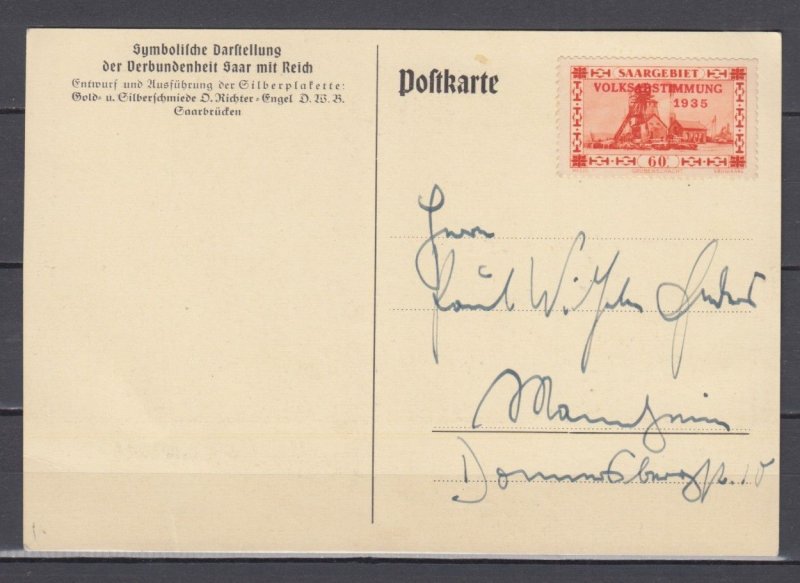 Symbolische Darstellung
der Verbundenheit Saar mit Reich
Entwurf und Ausführung der Silberplakette:
Gold- u. Silberschmiede O. Richter-Engel D. W. B.
Saarbrücken
Postkarte
SAARGEBIET
VOLKSABSTIMMUNG
1935
60
GRUBENSCHACHT
Herrn
Paul Wilhelm
Mannheim
Donnersbergstr. 10